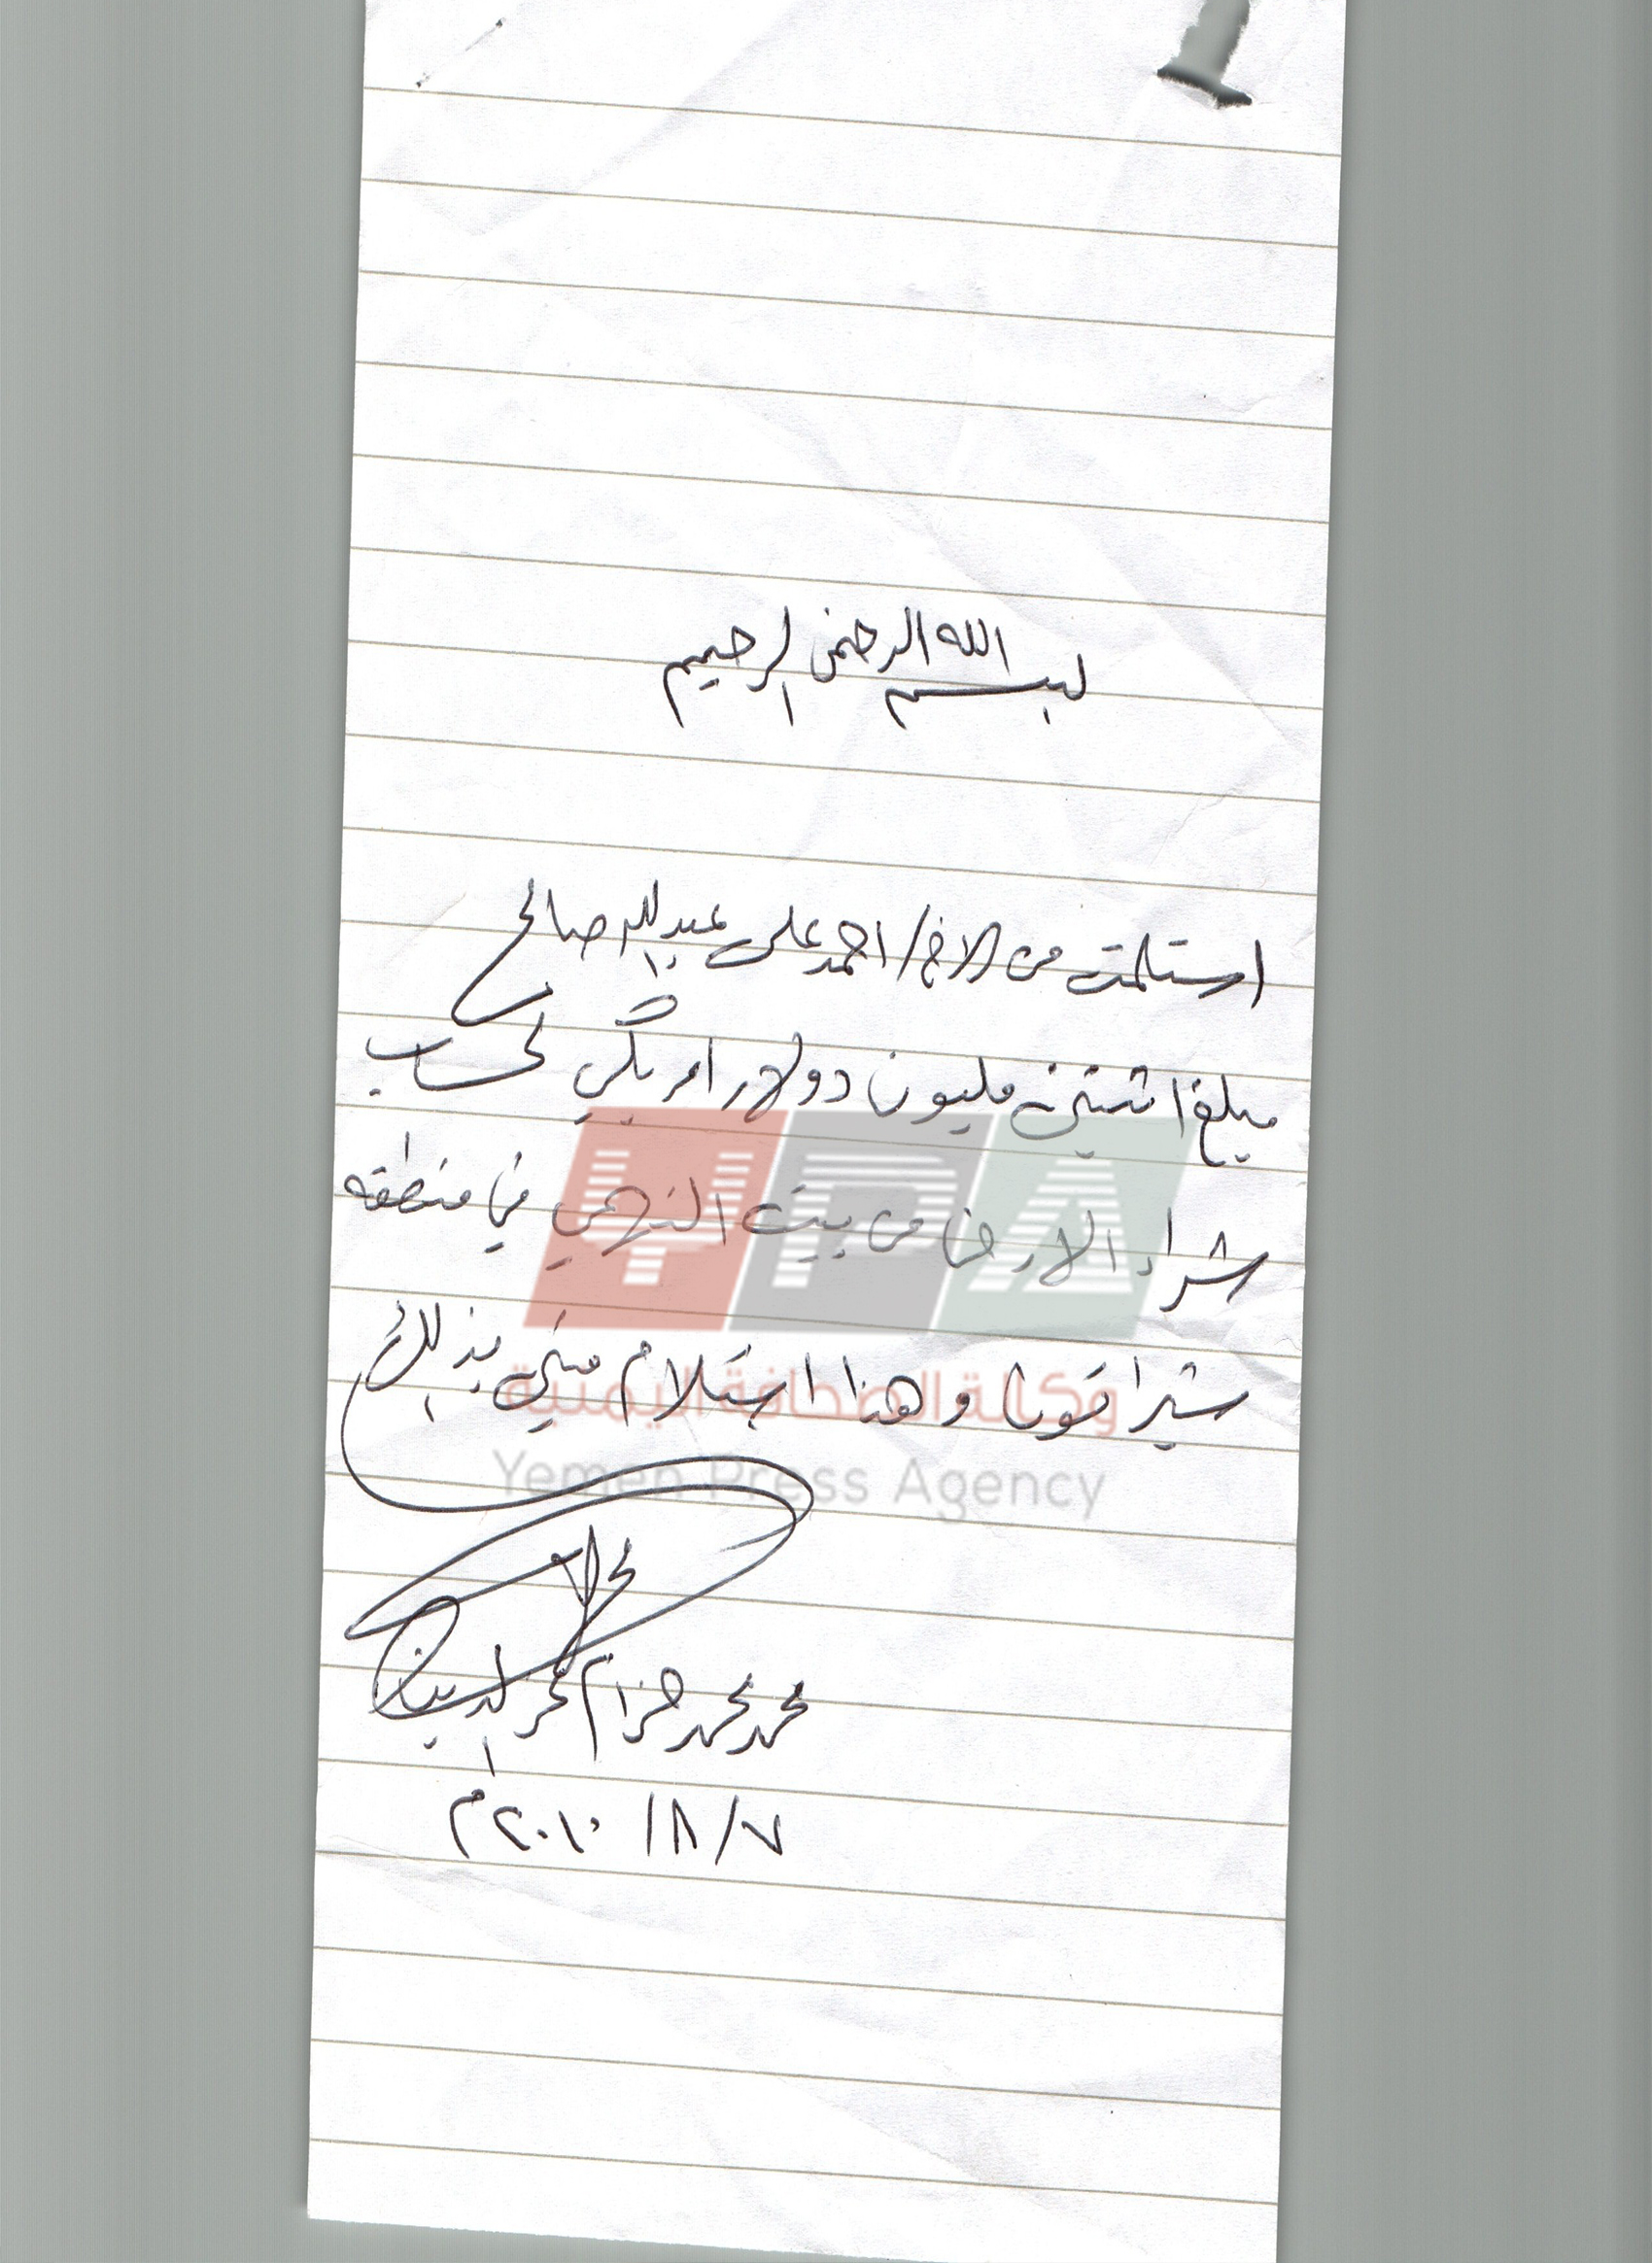 بسم الله الرحمن الرحيم
استلمت من الاخ/ احمد علي عبدالله صالح
مبلغ اثنين مليون دولار امريكي لحساب
شراء الارض من بيت النهمي في منطقه
شيراتون وهذا استلام مني بذلك
محمد محمد حزام
٧/٨/٢٠١٠م
YPA
وكالة الصحافة اليمنية
Yemen Press Agency